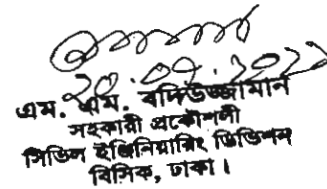 ২০.০৭.২০২২
এম. এম. বদিউজ্জামান
সহকারী প্রকৌশলী
সিভিল ইঞ্জিনিয়ারিং ডিভিশন
বিসিক, ঢাকা।